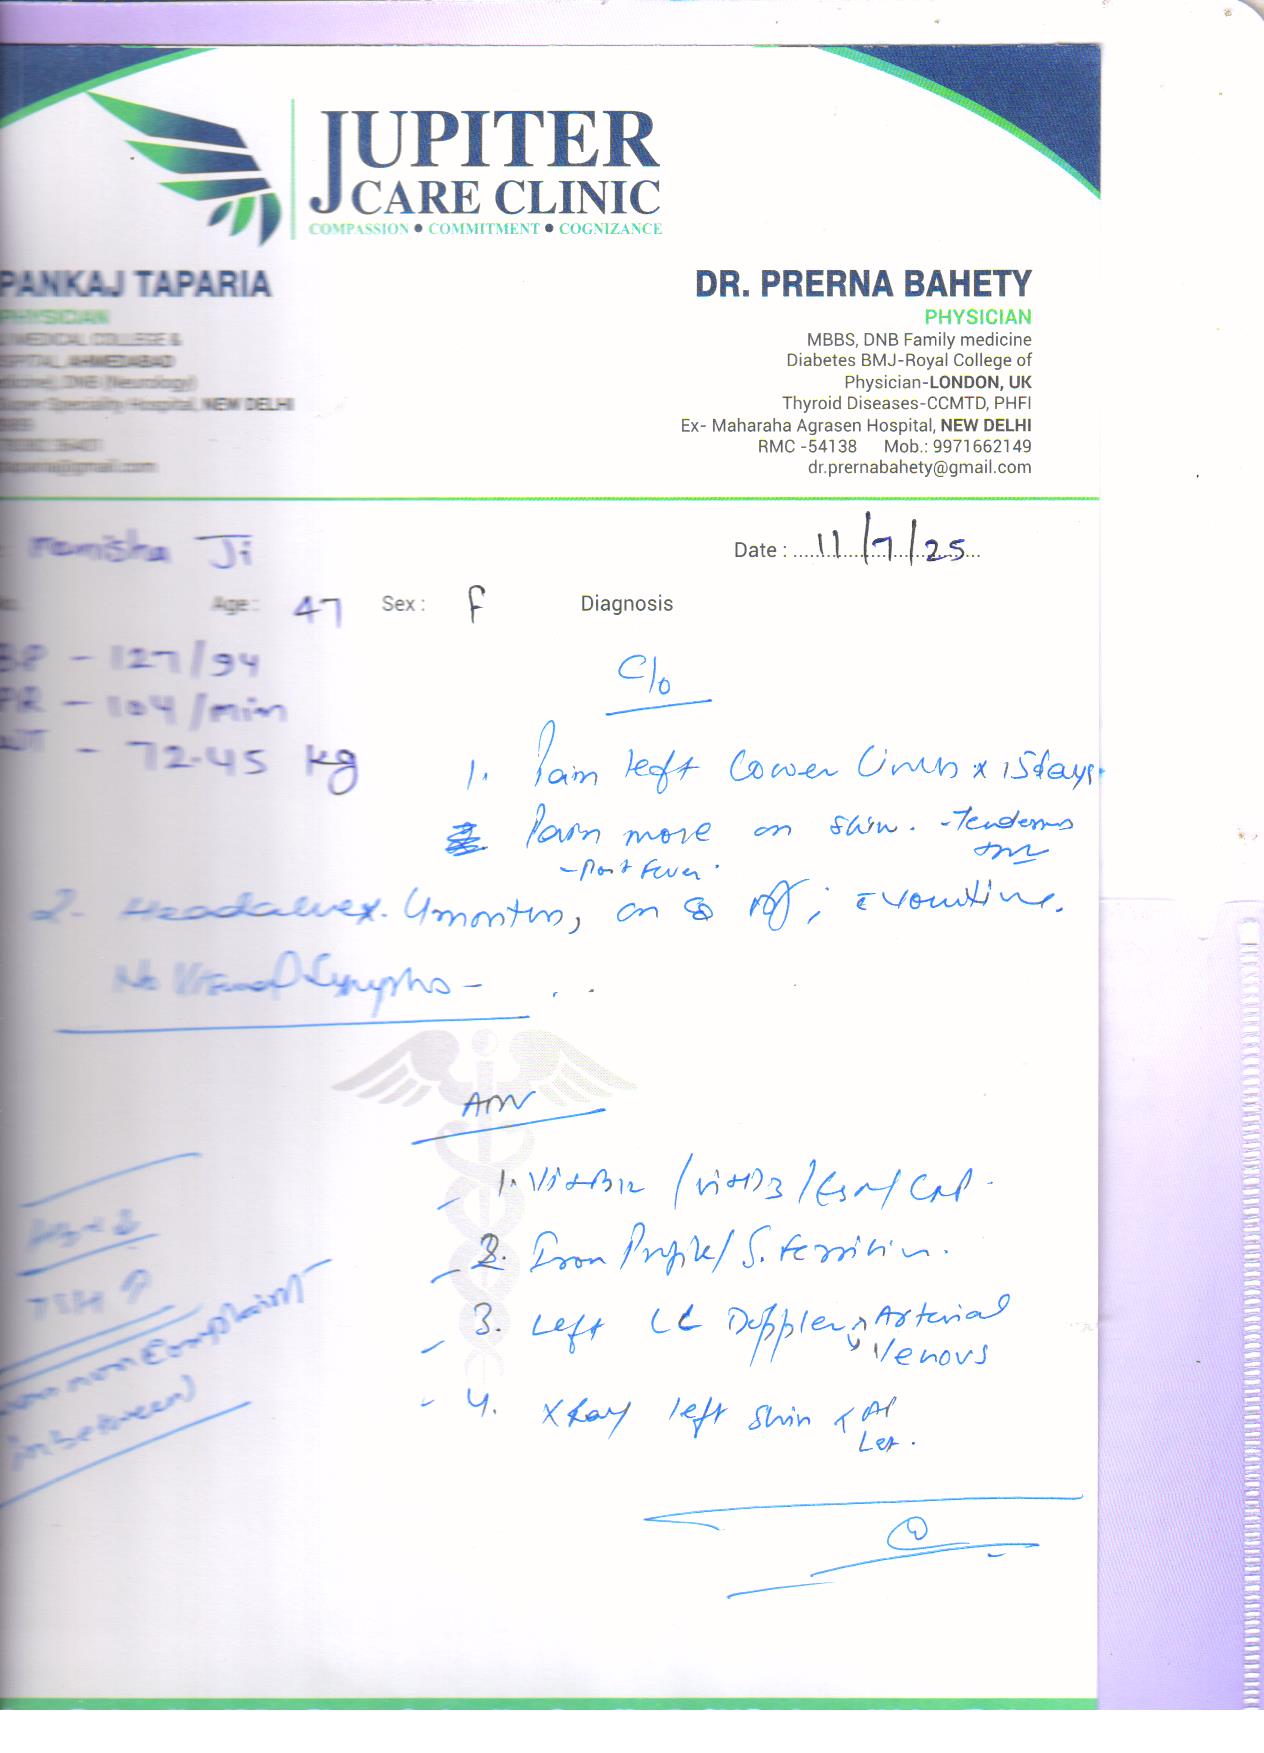 JUPITER
CARE CLINIC
COMPASSION ● COMMITMENT ● COGNIZANCE
PANKAJ TAPARIA
PHYSICIAN
MEDICAL COLLEGE &
HOSPITAL, AHMEDABAD
DNB (Neurology)
Super Speciality Hospital, NEW DELHI
taparia@gmail.com
DR. PRERNA BAHETY
PHYSICIAN
MBBS, DNB Family medicine
Diabetes BMJ-Royal College of
Physician-LONDON, UK
Thyroid Diseases-CCMTD, PHFI
Ex- Maharaha Agrasen Hospital, NEW DELHI
RMC -54138 Mob.: 9971662149
dr.prernabahety@gmail.com
Ji
Date : 11/7/25
Age : 47 Sex : F Diagnosis
BP - 127/94
PR - 104/min
WT - 72.45 kg
C/o
1. Pain left Lower Limb x 15days
Pain more on shin. - Tenderness
- Post Fever.
2. Headache x 4 months, on & off;
No Visual Symptoms -
Adv
1. Vit B12 / Vit D3 / ESR / CRP
2. Iron Profile / S. Ferritin.
3. Left LL Doppler Arterial
Venous
4. X Ray left shin AP
Lat.
TSH
Complaint
in between)